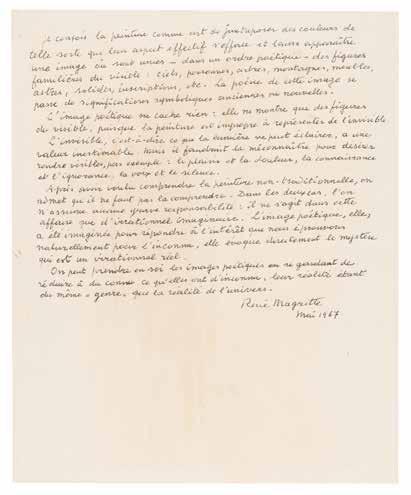 Je conçois la peinture comme art de juxtaposer des couleurs de
telle sorte que leur aspect effectif s'efface et laisse apparaître
une image où sont unies – dans un ordre poétique – des figures
familières du visible : ciels, personnes, arbres, montagnes, meubles,
astres, solides, inscriptions, etc. La poésie de cette image se
passe de significations symboliques anciennes ou nouvelles.
L'image poétique ne cache rien : elle ne montre que des figures
du visible, puisque la peinture est impropre à représenter de l'invisible
L'invisible, c'est-à-dire ce que la lumière ne peut éclairer, a une
valeur inestimable mais il faudrait la méconnaître pour désirer
rendre visibles, par exemple : le plaisir et la douleur, la connaissance
et l'ignorance, la voix et le silence.
Après avoir voulu comprendre la peinture non-traditionnelle, on
admet qu'il ne faut pas la comprendre. Dans les deux cas, l'on
n'assume aucune grave responsabilité : il ne s'agit dans cette
affaire que d'irrationnel imaginaire. L'image poétique, elle,
a été imaginée pour répondre à l'intérêt que nous éprouvons
naturellement pour l'inconnu, elle évoque directement le mystère
qui est un irrationnel réel.
On peut prendre en soi les images poétiques en se gardant de
réduire à du connu ce qu'elles ont d'inconnu, leur réalité étant
du même « genre » que la réalité de l'univers.
René Magritte
Mai 1967